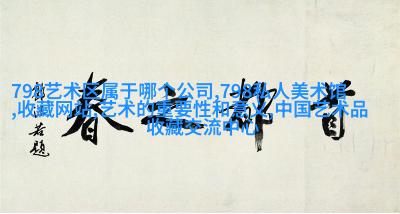 798艺术区属于哪个公司,798私人美术馆
,收藏网站,艺术的重要性和意义,中国艺术品
收藏交流中心
首都之春
若题